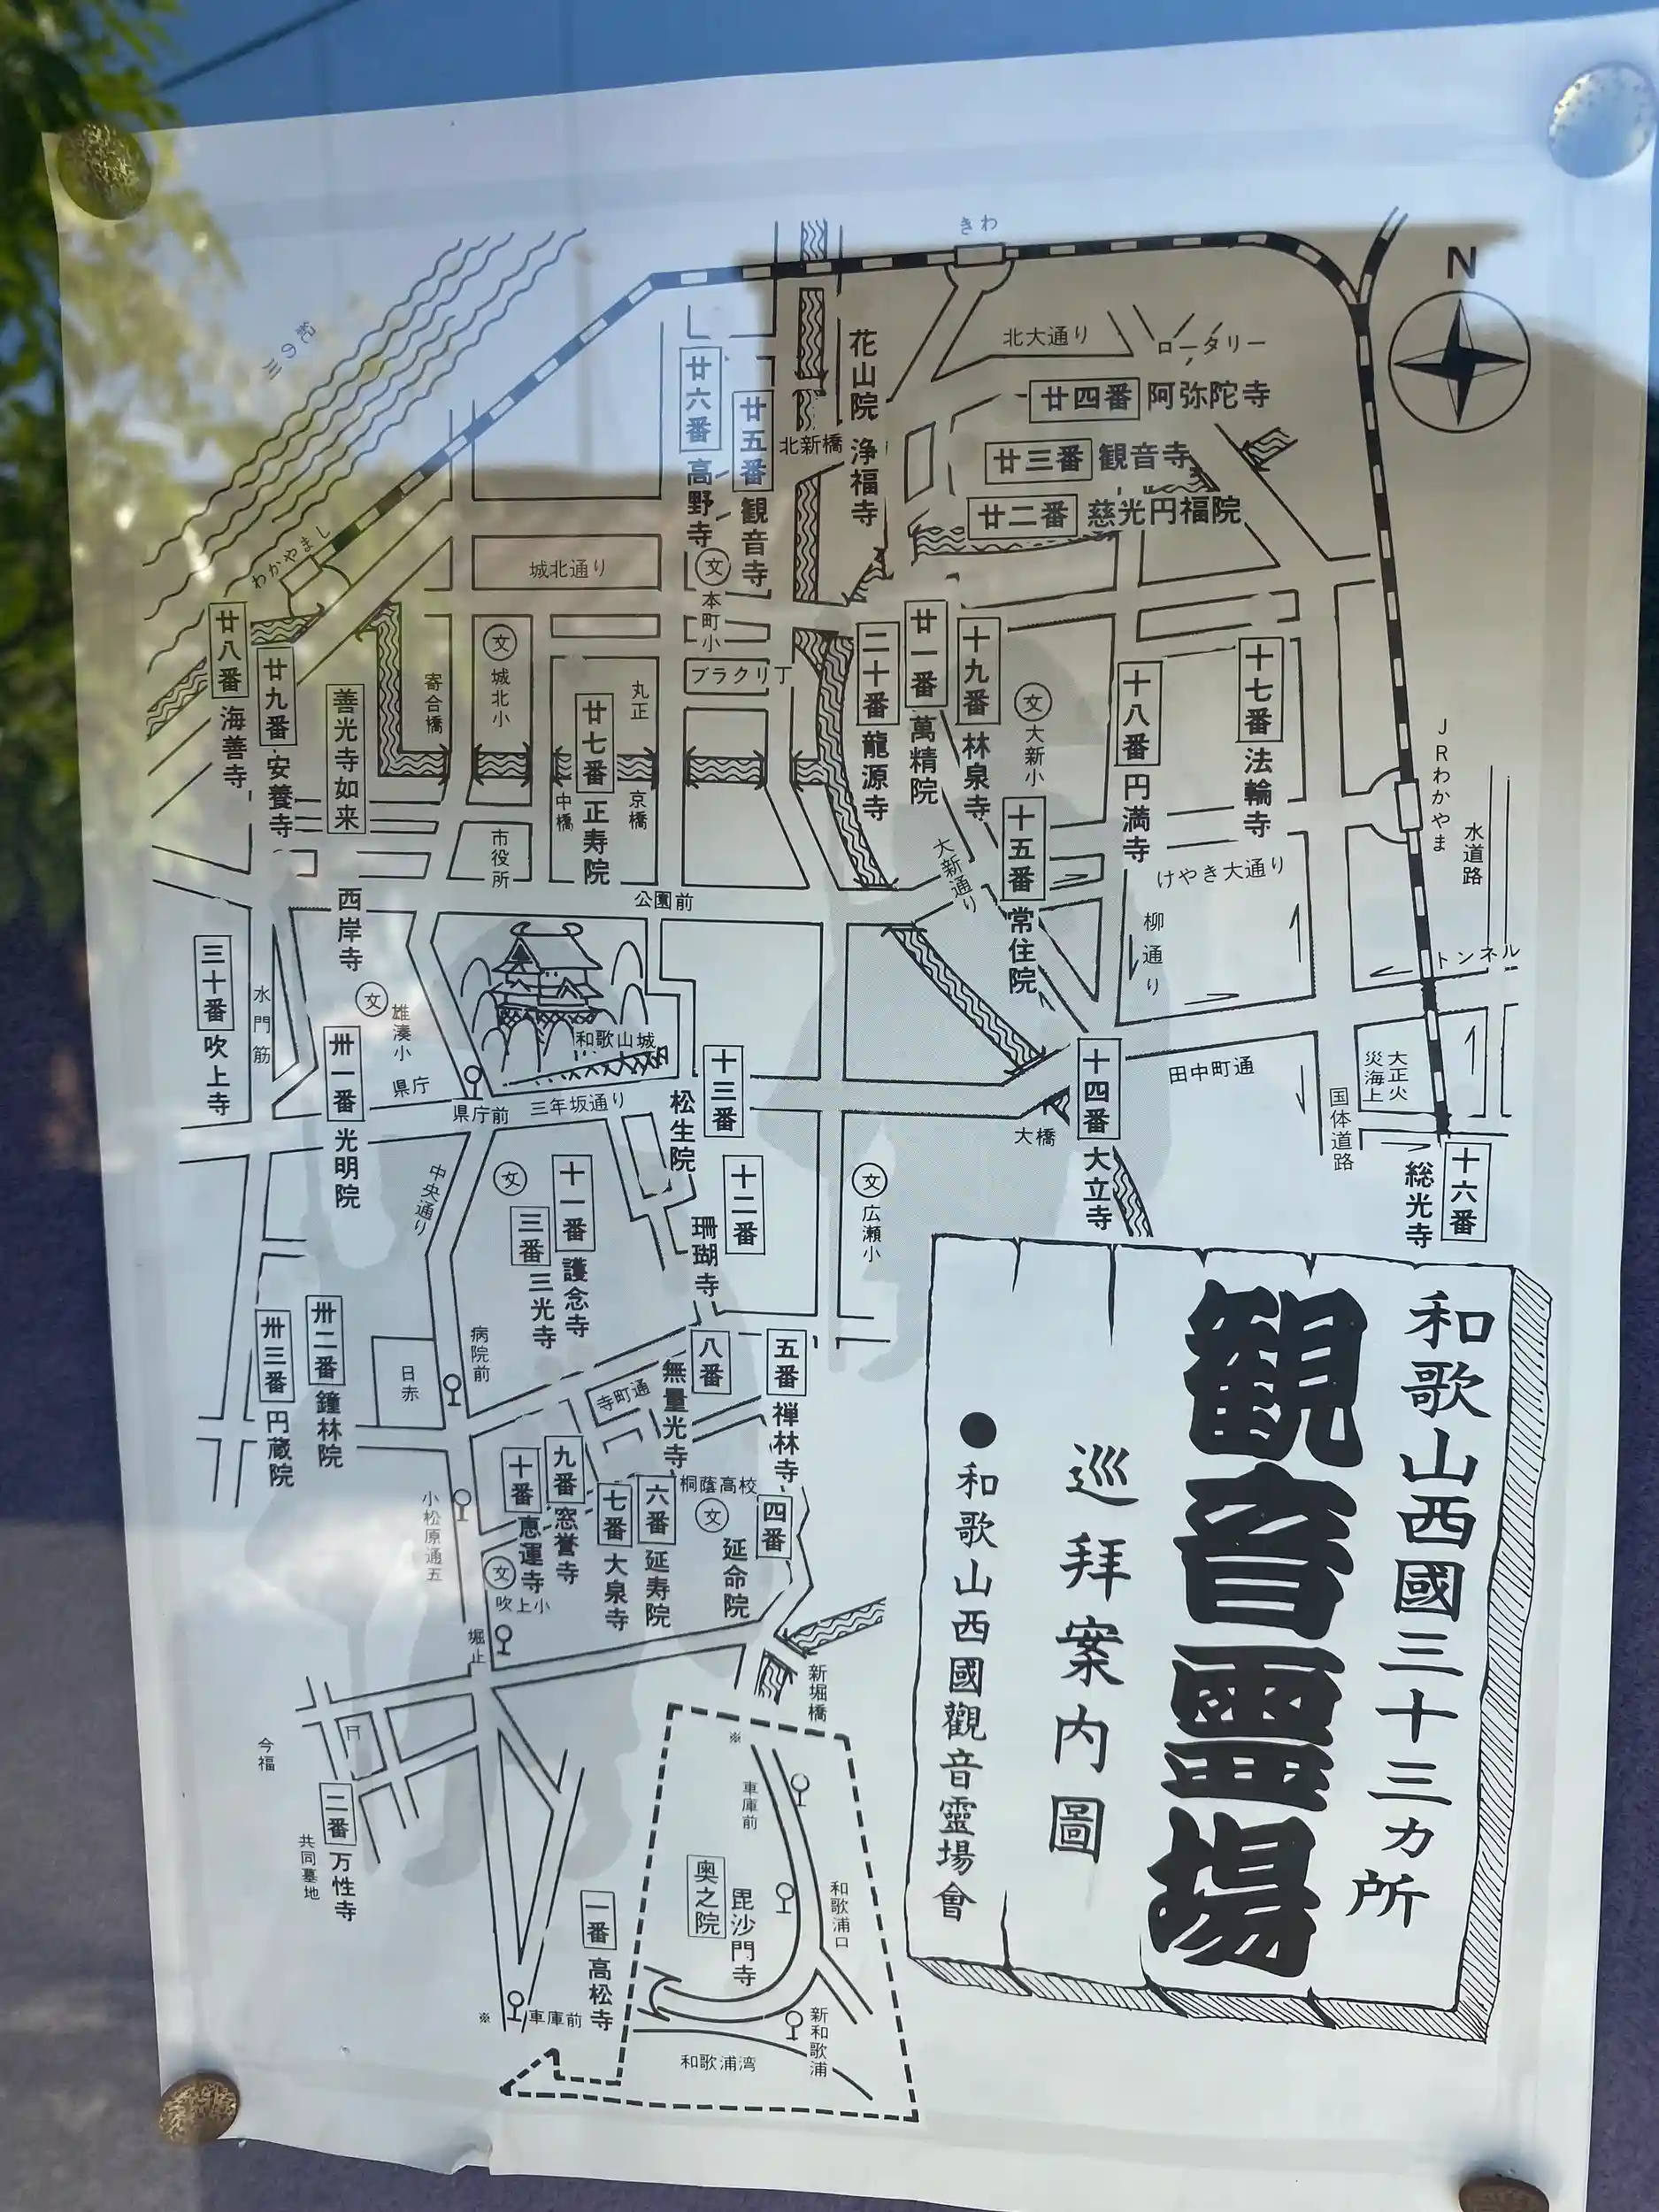 きわ
N
紀の川
北大通り
ロータリー
花山院
浄福寺
廿六番 高野寺
廿五番 観音寺
北新橋
廿四番 阿弥陀寺
廿三番 観音寺
廿二番 慈光円福院
わかやまし
城北通り
文
本町小
ブラクリ丁
廿八番 海善寺
廿九番 安養寺
善光寺如来
寄合橋
文
城北小
廿七番 正寿院
丸正
中橋
京橋
市役所
二十番 龍源寺
廿一番 萬精院
十九番 林泉寺
文
大新小
十八番 円満寺
十七番 法輪寺
JRわかやま
水道路
十五番 常住院
大新通り
けやき大通り
柳通り
トンネル
公園前
西岸寺
三十番 吹上寺
水門筋
文
雄湊小
県庁
卅一番 光明院
和歌山城
県庁前
三年坂通り
十三番 松生院
十四番 大立寺
大橋
田中町通
国体道路
大正火災海上
十六番 総光寺
中央通り
文
十一番 護念寺
三番 三光寺
十二番 珊瑚寺
文
広瀬小
卅二番 鐘林院
卅三番 円蔵院
日赤
病院前
寺町通
八番 無量光寺
五番 禅林寺
十番 恵運寺
九番 窓誉寺
七番 大泉寺
六番 延寿院
桐蔭高校
文
四番 延命院
小松原通五
文
吹上小
堀止
新堀橋
今福
二番 万性寺
共同墓地
一番 高松寺
※
車庫前
※
車庫前
奥之院
毘沙門寺
和歌浦口
新和歌浦
和歌浦湾
和歌山西國三十三カ所
観音霊場
巡拝案内圖
●和歌山西國觀音靈場會